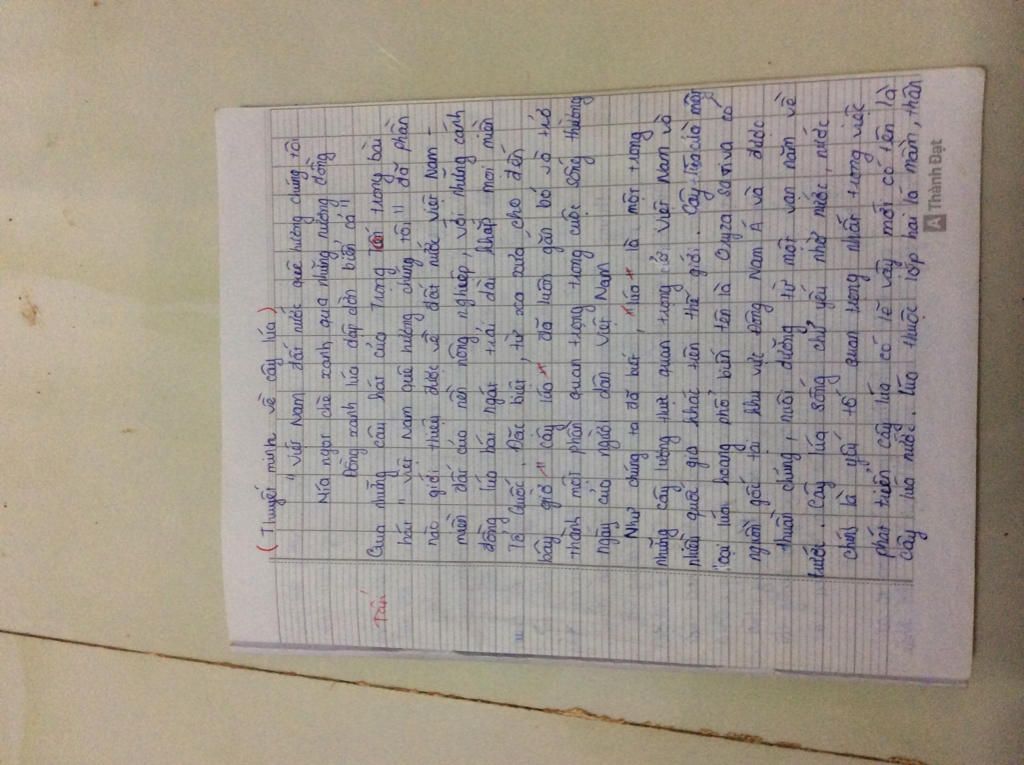 ( Thuyết minh về cây lúa )
" Việt Nam đất nước quê hương chúng tôi
Nía ngọt chè xanh qua những nương đồng
Đồng xanh lúa dập dờn biển cả "
Qua những câu hát của Trọng trong bài
Tân
hát " Việt Nam quê hương chúng tôi " đã phần
nào giới thiệu được về đất nước Việt Nam -
miền đất của nền nông nghiệp, với những cánh
đồng lúa bát ngát trải dài khắp mọi miền
Tổ Quốc. Đặc biệt, từ xa xưa cho đến
bây giờ " cây lúa " đã luôn gắn bó và trở
thành một phần quan trọng trong cuộc sống thường
ngày của người dân Việt Nam
Như chúng ta đã biết, " lúa " là một trong
những cây lương thực quan trọng ở Việt Nam và
nhiều quốc gia khác trên thế giới. Cây lúa là một
loại lúa hoang phổ biến tên là Oryza sativa có
nguồn gốc tại khu vực Đông Nam Á và được
thuần chủng, nuôi dưỡng từ một vạn năm về
trước. Cây lúa sống chủ yếu nhờ nước, nước
chính là yếu tố quan trọng nhất trong việc
phát triển cây lúa có lẽ vậy mới có tên là
cây lúa nước. Lúa thuộc lớp hai lá mầm, thân
A Thành Đạt